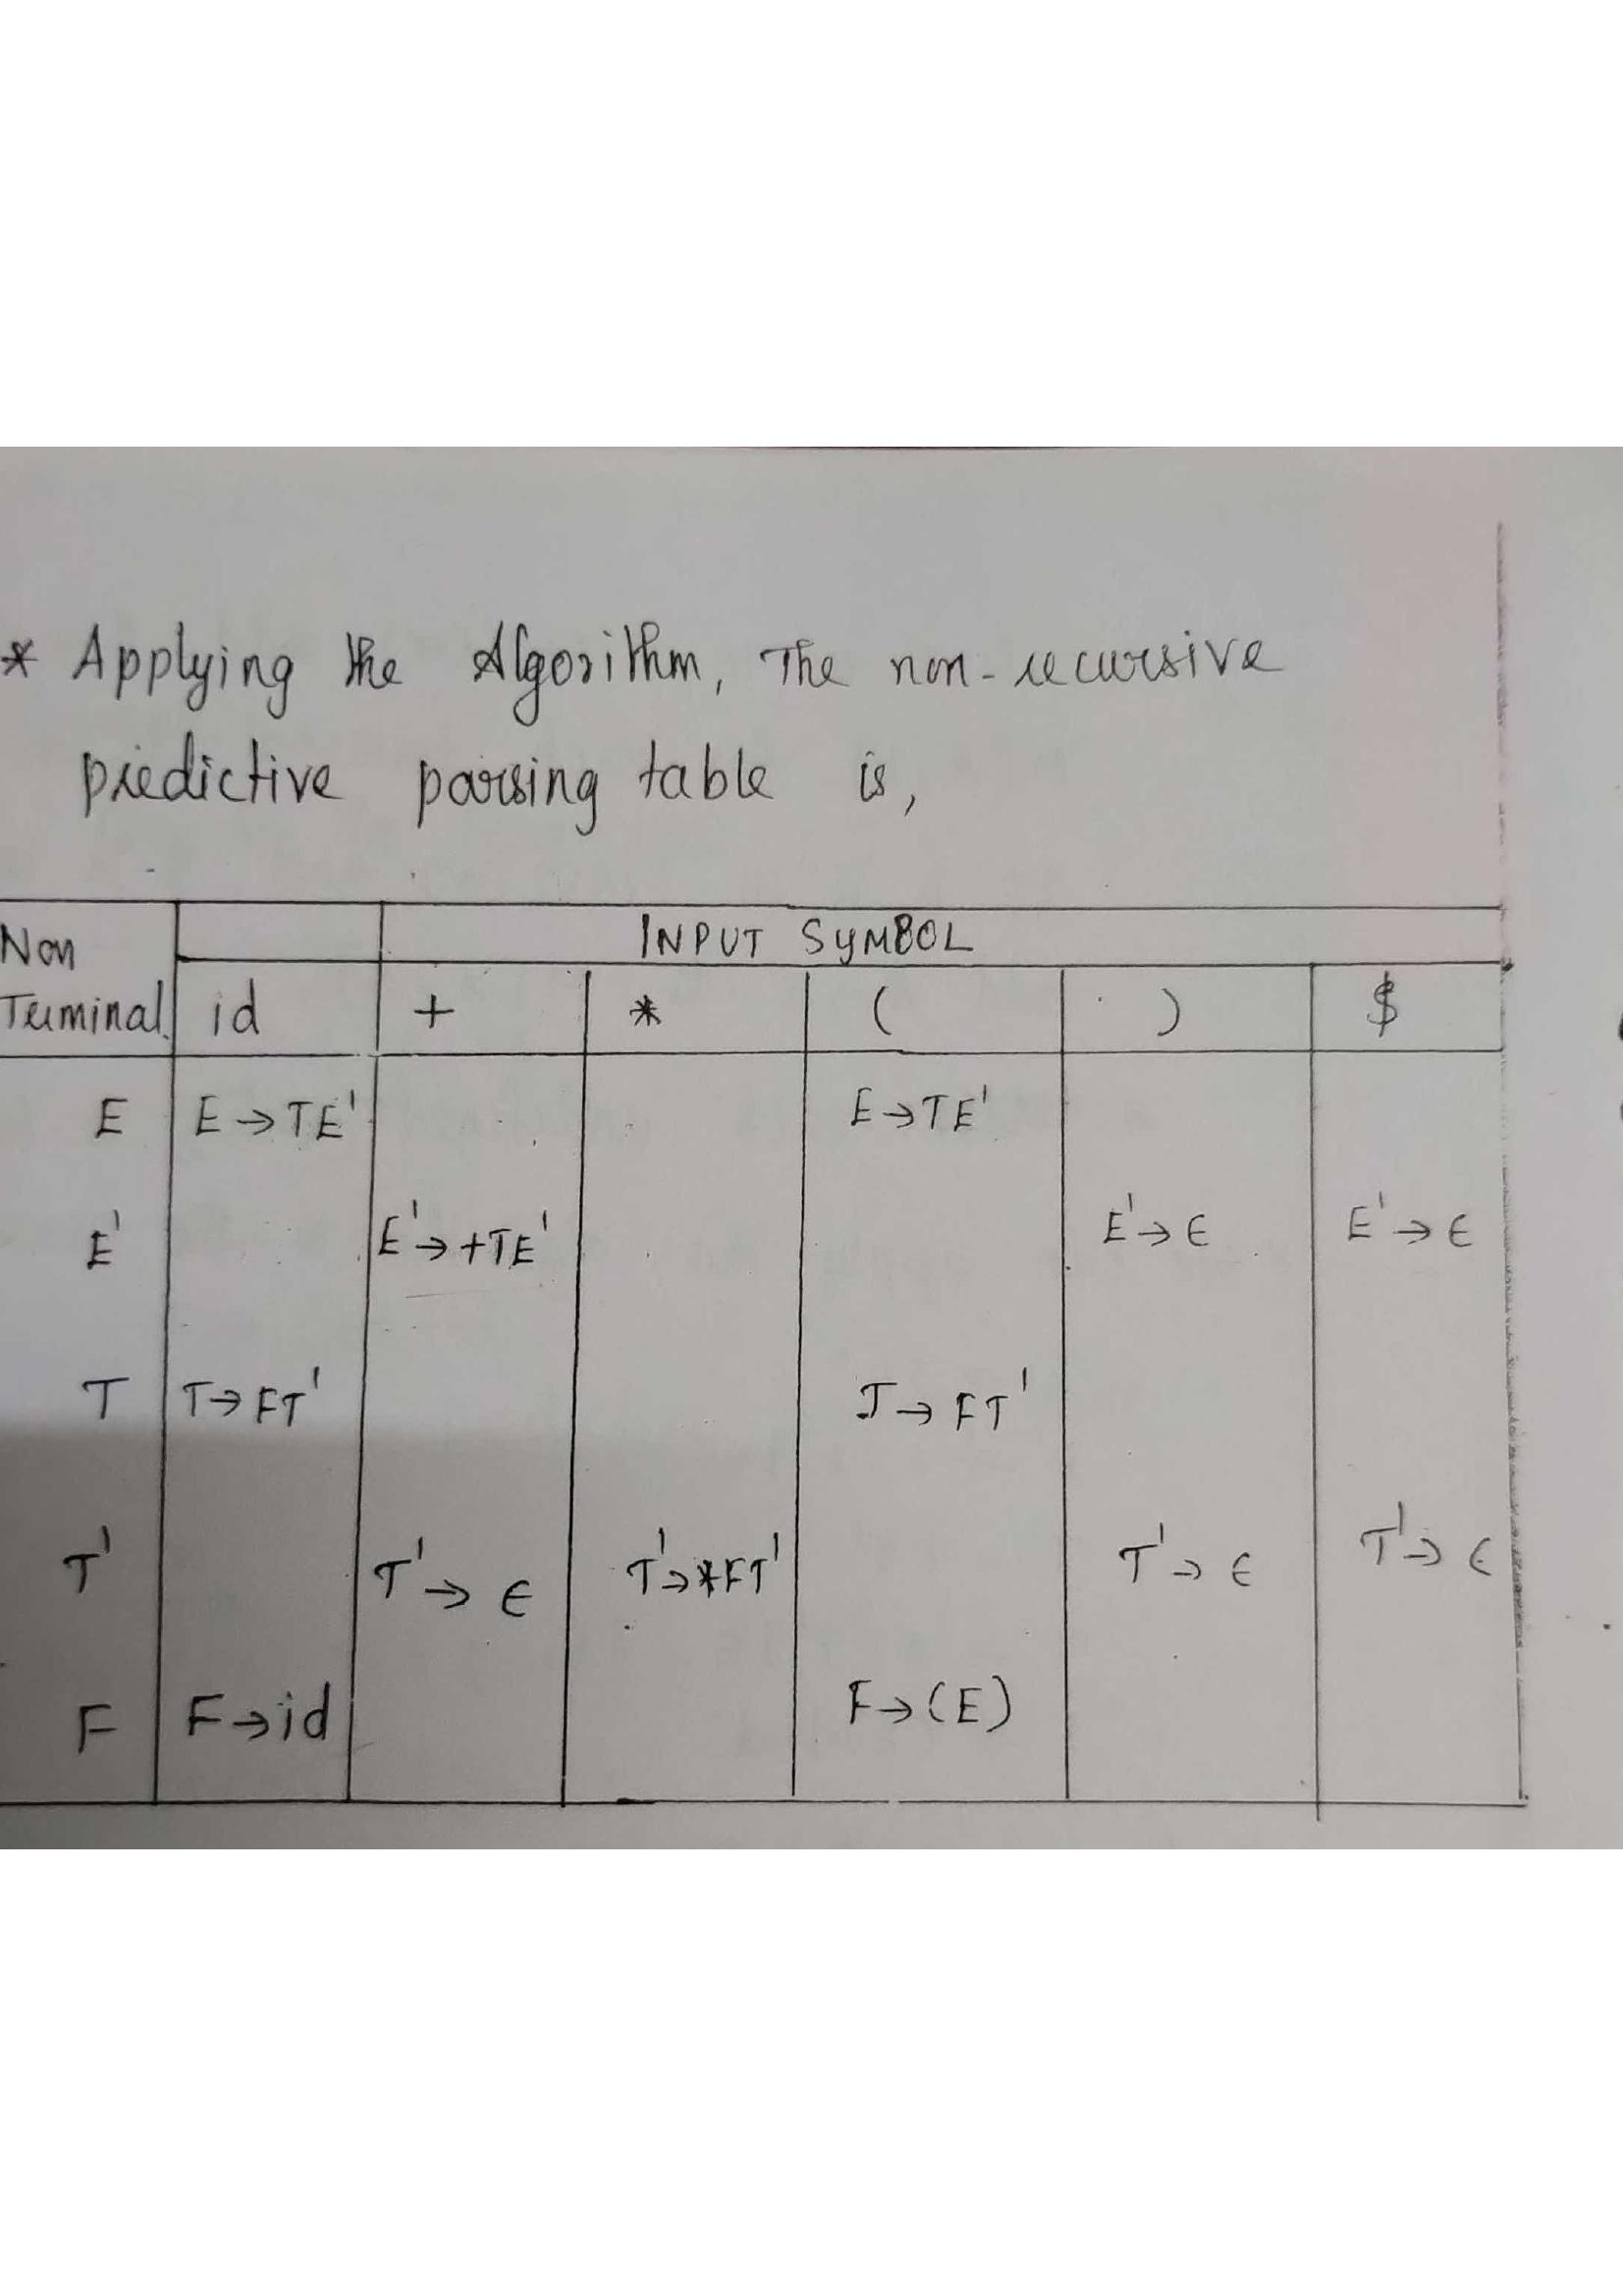 * Applying the Algorithm, The non-recursive
predictive parsing table is,
Non Terminal INPUT SYMBOL
id + * ( ) $
E E→TE' E→TE'
E' E'→+TE' E'→ϵ E'→ϵ
T T→FT' T→FT'
T' T'→ϵ T'→*FT' T'→ϵ T'→ϵ
F F→id F→(E)